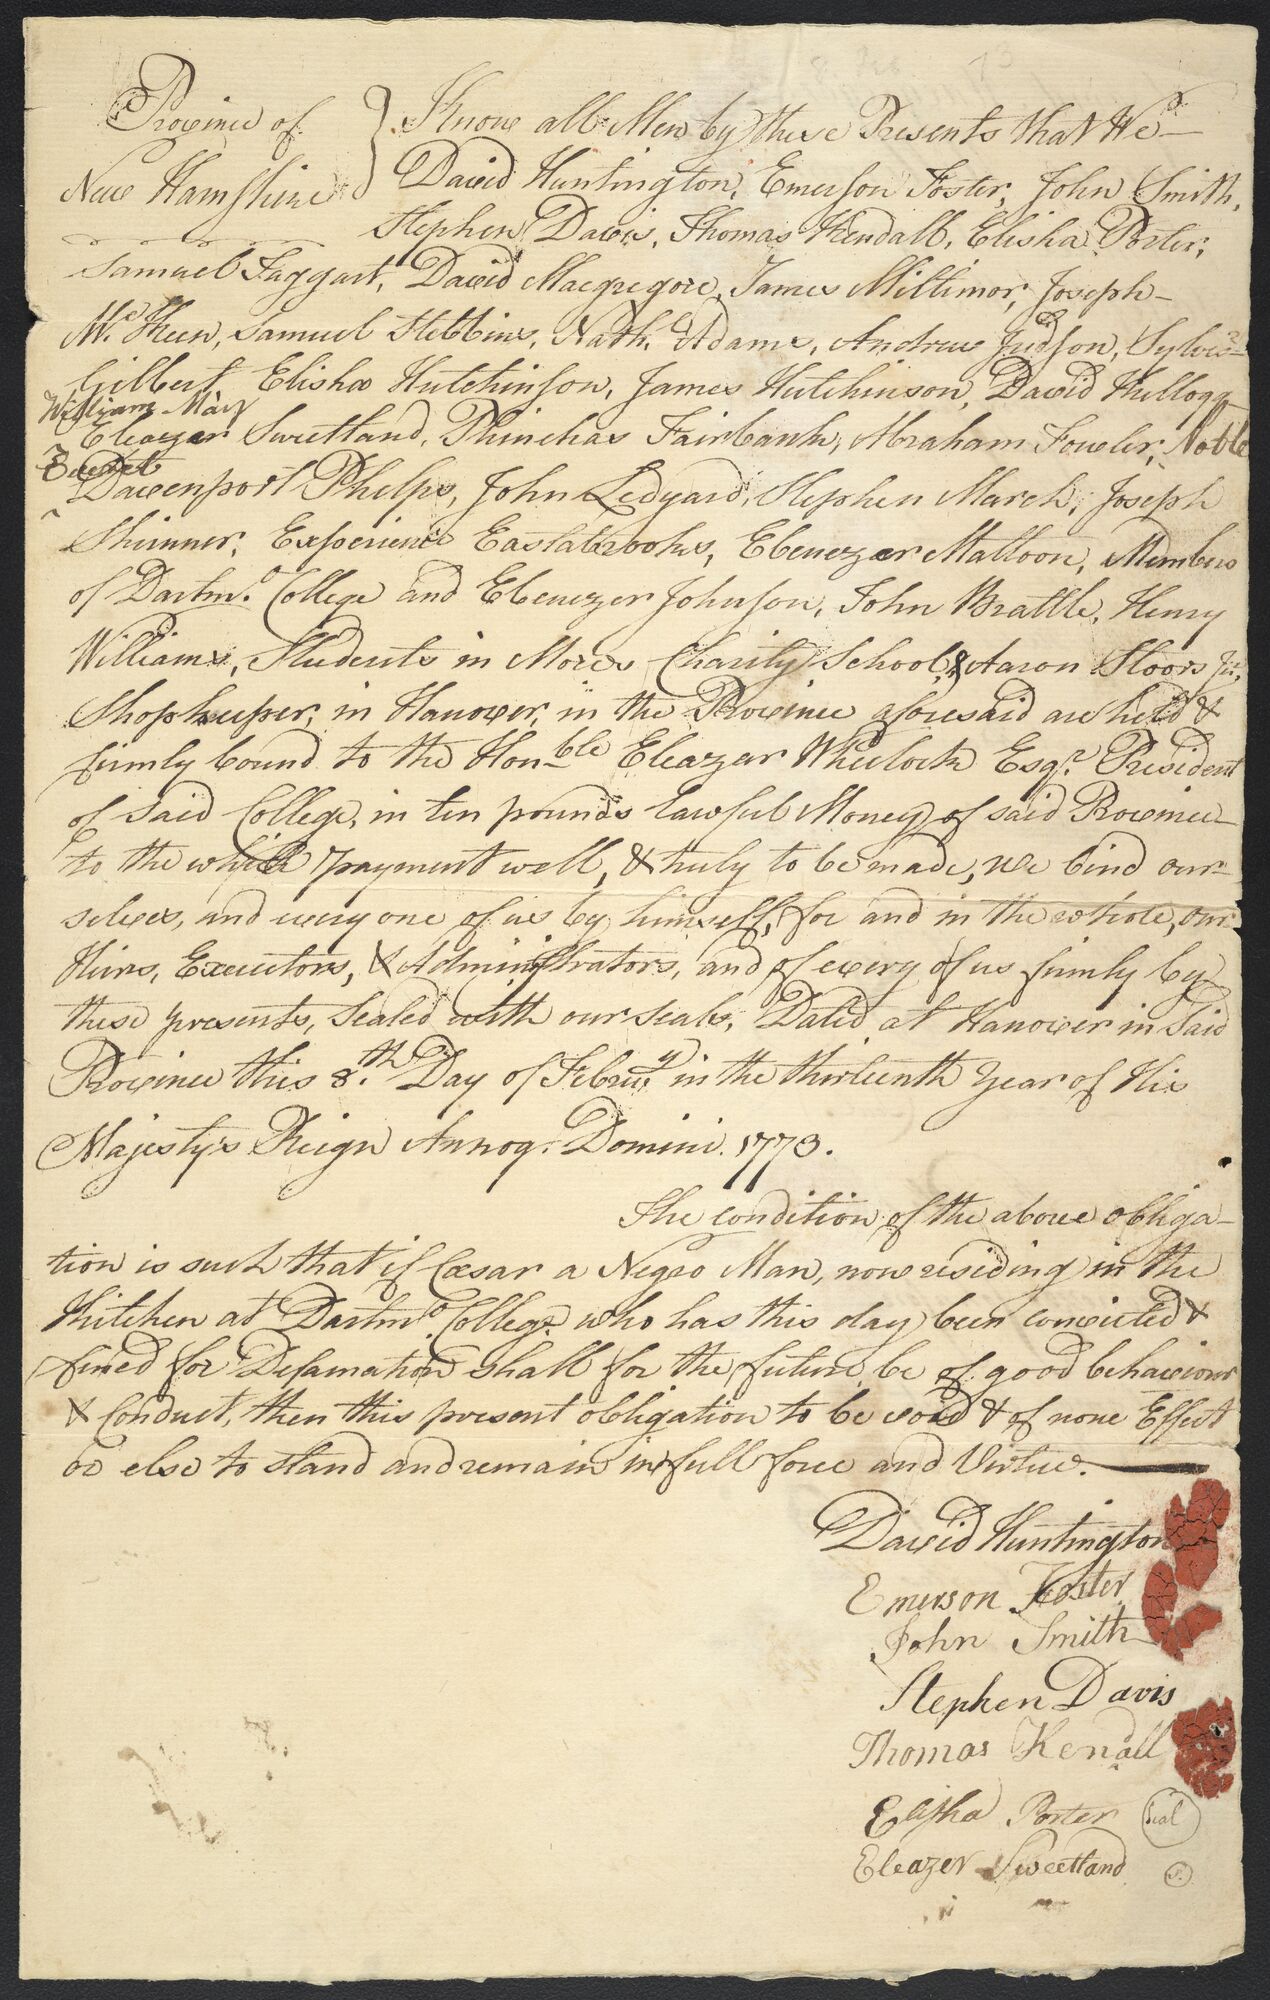 Province of
New Hampshire
Know all Men by these Presents that We
David Huntington, Emerson Foster, John Smith,
Stephen Davis, Thomas Kendall, Elisha Porter,
Samuel Taggart, David Macgregore, James Miltimor, Joseph
Mc.Keen, Samuel Stebbins, Nath. Adams, Andrew Judson, Sylvs.
Gilbert, Elisha Hutchinson, James Hutchinson, David Kellogg
William May
Eleazer Sweetland, Phinehas Fairbank, Abraham Fowler, Noble
Everet
Davenport Phelps, John Ledyard, Stephen March, Joseph
Skinner, Experience Eastabrooks, Ebenezer Mattoon, Members
of Dartmo. College and Ebenezer Johnson, John Brattle, Henry
Williams, Students in Mores Charity School, & Aaron Stoors Jr.
Shopkeeper, in Hanover, in the Province aforesaid are held &
firmly bound to the Honble Eleazar Wheelock Esqr. President
of said College, in ten pounds lawful Money of said Province
to the which payment well, & truly to be made, we bind our-
selves, and every one of us by himself, for and in the whole, our
Heirs, Executors, & Administrators, and of every of us firmly by
these presents, Sealed with our seals, Dated at Hanover in Said
Province this 8.th Day of Febru.y in the thirteenth Year of His
Majesty's Reign Annoq. Domini. 1773.
The condition of the above obliga-
tion is such that if Cæsar a Negro Man, now residing in the
Kitchen at Dartmo. College who has this day been convicted &
fined for Defamation shall for the future be of good behaviour
& Conduct, then this present obligation to be void & of none Effect
or else to stand and remain in full force and Virtue.
David Huntington
Emerson Foster
John Smith
Stephen Davis
Thomas Kendall
Elisha Porter Seal
Eleazer Sweetland S.